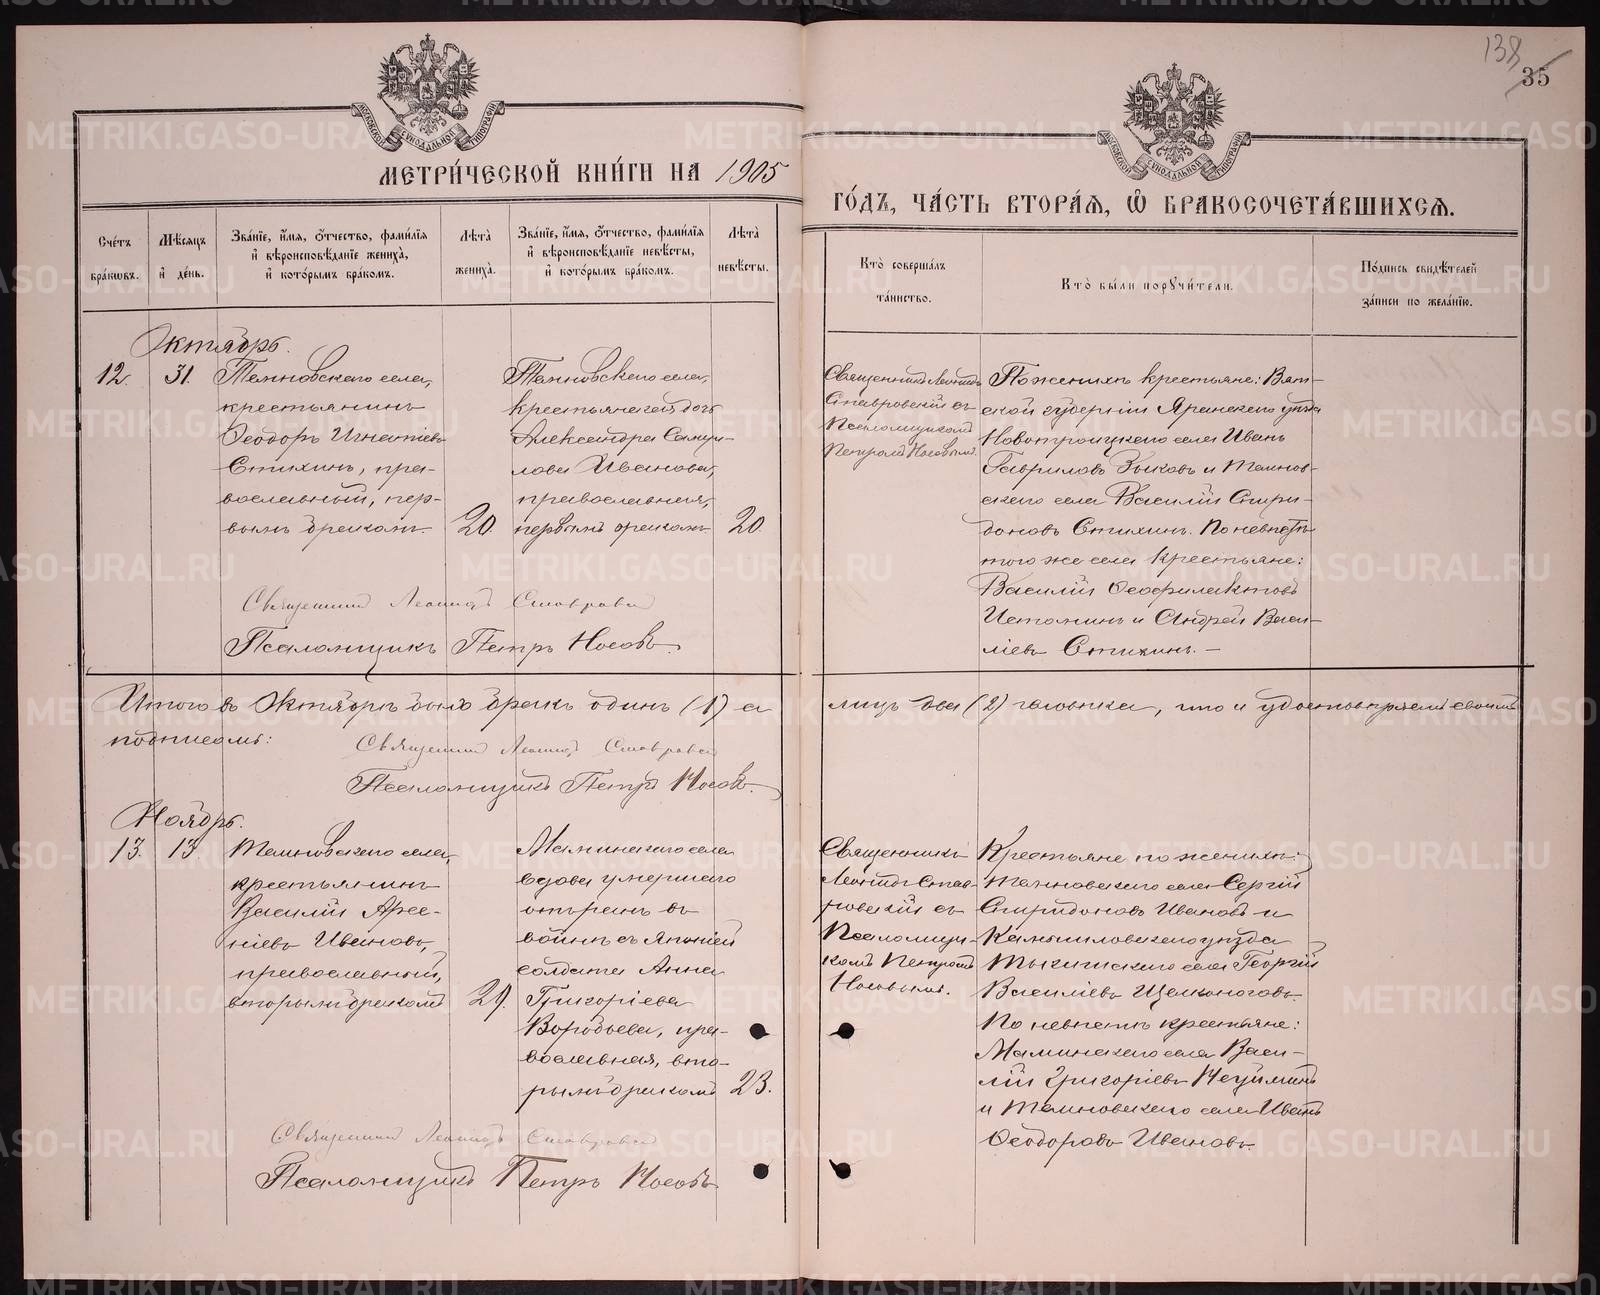 138
35
МОСКОВСКОЙ СѴНОДАЛЬНОЙ ТИПОГРАФІИ
МОСКОВСКОЙ СѴНОДАЛЬНОЙ ТИПОГРАФІИ
МЕТРИ́ЧЕСКОЙ КНИ́ГИ НА 1905
ГО́ДЪ, ЧА́СТЬ ВТОРА́Я, Ѡ БРАКОСОЧЕТА́ВШИХСЯ.
Сче́тъ бра́ковъ.
Мѣ́сяцъ и́ де́нь.
Зва́нїе, и́мя, ѻ́тчество, фами́лїя и́ вѣроисповѣ́данїе жениха̀, и́ кото́рымъ бра́комъ.
Лѣ́та жениха̀.
Зва́нїе, и́мя, ѻ́тчество, фами́лїя и́ вѣроисповѣ́данїе невѣ́сты, и́ кото́рымъ бра́комъ.
Лѣ́та невѣ́сты.
Кто̀ соверша́лъ та́инство.
Кто̀ бы́ли порꙋчи́тели.
По́дпись свидѣ́телей за́писи по жела́нїю.
Октябрь.
12. 31.
Темновскаго села,
крестьянинъ
Ѳеодоръ Игнатіевъ
Стихинъ, пра-
вославный, пер-
вымъ бракомъ.
20.
Темновскаго села,
крестьянская дочь
Александра Самуи-
лова Иванова,
православная,
первымъ бракомъ.
20.
Священникъ Леонидъ
Ставровскій съ
Псаломщикомъ
Петромъ Носовымъ.
По женихѣ крестьяне: Вят-
ской губерніи Яранскаго уѣзда
Новотроицкаго села Иванъ
Гавриловъ Зыковъ и Темнов-
скаго села Василій Спири-
доновъ Стихинъ. По невѣстѣ
того же села крестьяне:
Василій Ѳеофилактовъ
Истоминъ и Андрей Васи-
ліевъ Стихинъ. —
Священникъ Леонидъ Ставровскій
Псаломщикъ Петръ Носовъ.
Итого въ Октябрѣ было бракъ одинъ (1) а
лицъ два (2) человѣка, что и удостовѣряемъ своимъ
подписомъ:
Священникъ Леонидъ Ставровскій
Псаломщикъ Петръ Носовъ.
Ноябрь.
13. 13.
Темновскаго села,
крестьянинъ
Василій Арсе-
ніевъ Ивановъ,
православный,
вторымъ бракомъ
29.
Маминскаго села
вдова умершаго
отъ ранъ въ
войнѣ съ Японіей
солдата Анна
Григоріева
Воробьева, пра-
вославная, вто-
рымъ бракомъ
23.
Священникъ
Леонидъ Став-
ровскій съ
Псаломщи-
комъ Петромъ
Носовымъ.
Крестьяне по женихѣ:
Темновскаго села Сергій
Спиридоновъ Ивановъ и
Камышловскаго уѣзда
села Георгій
Василіевъ Щелконоговъ.
По невѣстѣ крестьяне:
Маминскаго села Васи-
лій Григоріевъ Неуйминъ
и Темновскаго села Иванъ
Ѳеодоровъ Ивановъ.
Священникъ Леонидъ Ставровскій
Псаломщикъ Петръ Носовъ
METRIKI.GASO-URAL.RU